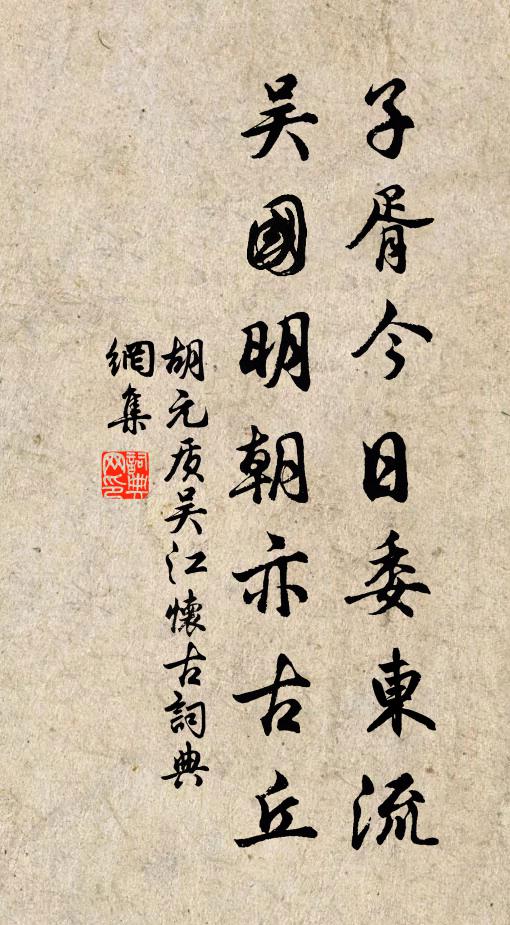 子胥今日委東流
吴國明朝亦古丘
胡元质吴江懷古詞典
網集
詞典网印